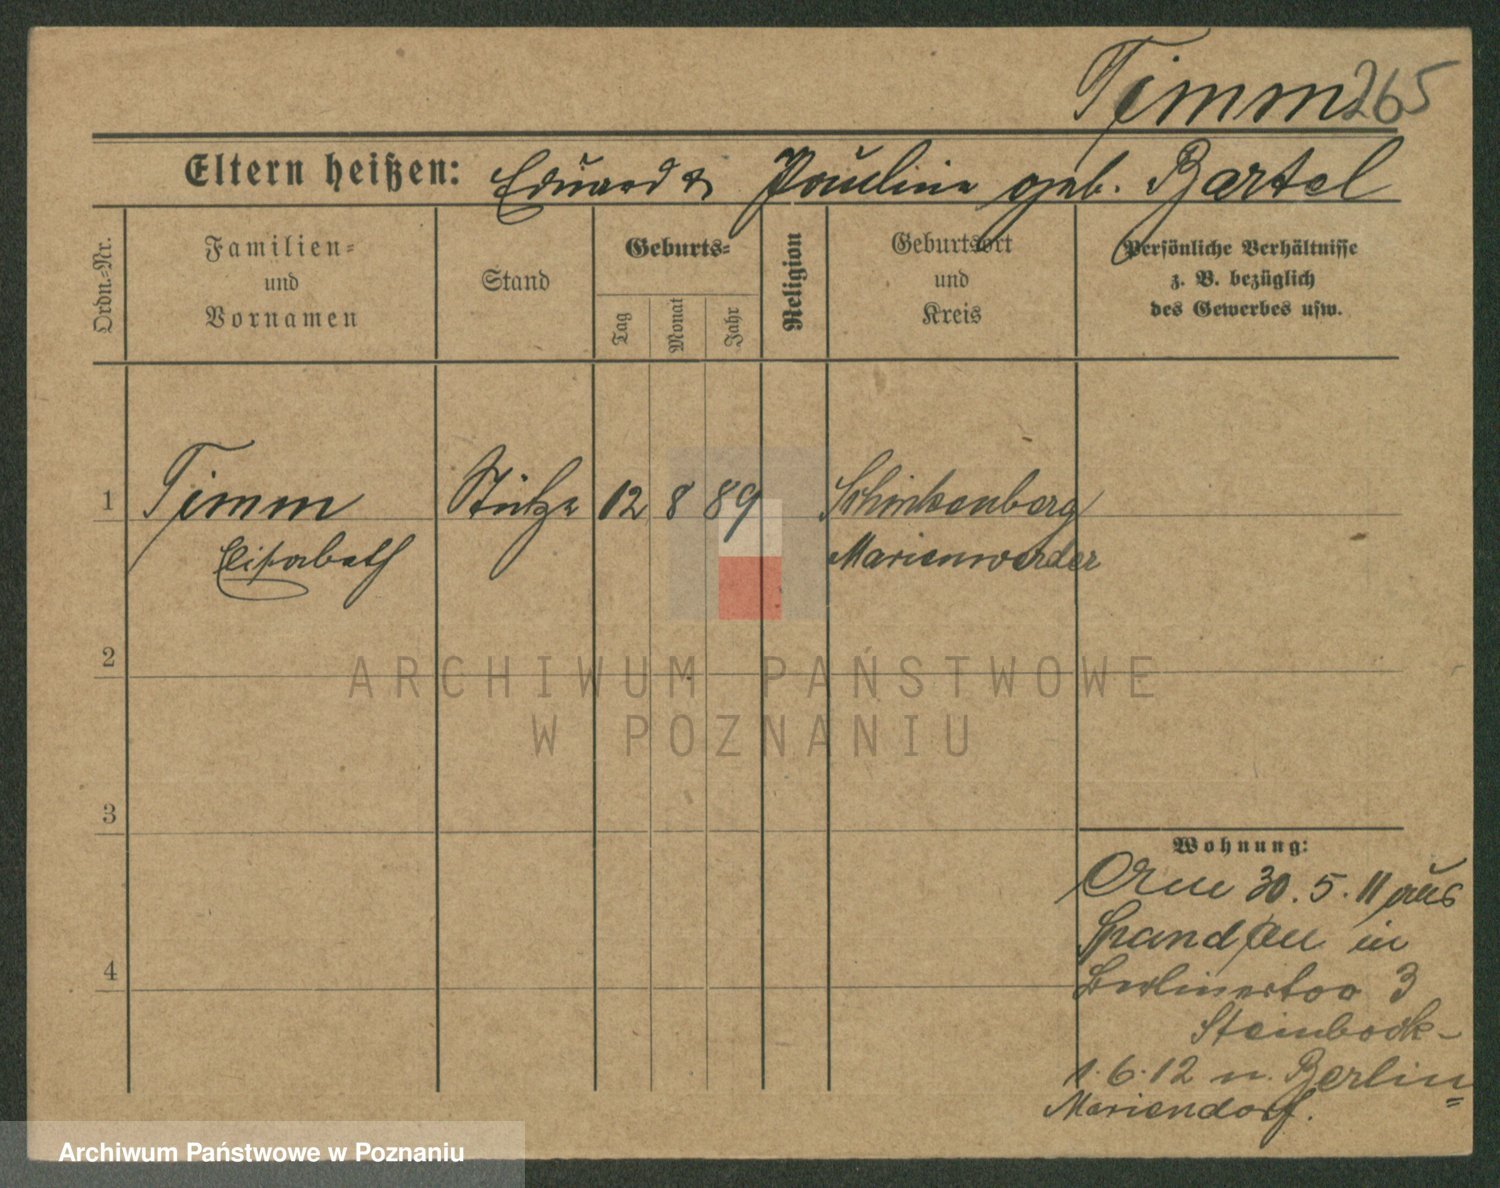 Timm 265
Eltern heißen: Eduard & Pauline geb. Bartel
Ordn.-Nr.
Familien-
und
Vornamen
Stand
Geburts-
Tag
Monat
Jahr
Religion
Geburtsort
und
Kreis
Persönliche Verhältnisse
z. B. bezüglich
des Gewerbes usw.
1 Timm Stütze 12 8 89 Schinkenberg
Elisabeth Marienwerder
2
3
4
Wohnung:
30. 5. 11 aus
Spandau in
Berlinertor 3
Steinbock-
1. 6. 12 n. Berlin=
Mariendorf.
ARCHIWUM PAŃSTWOWE
W POZNANIU
Archiwum Państwowe w Poznaniu